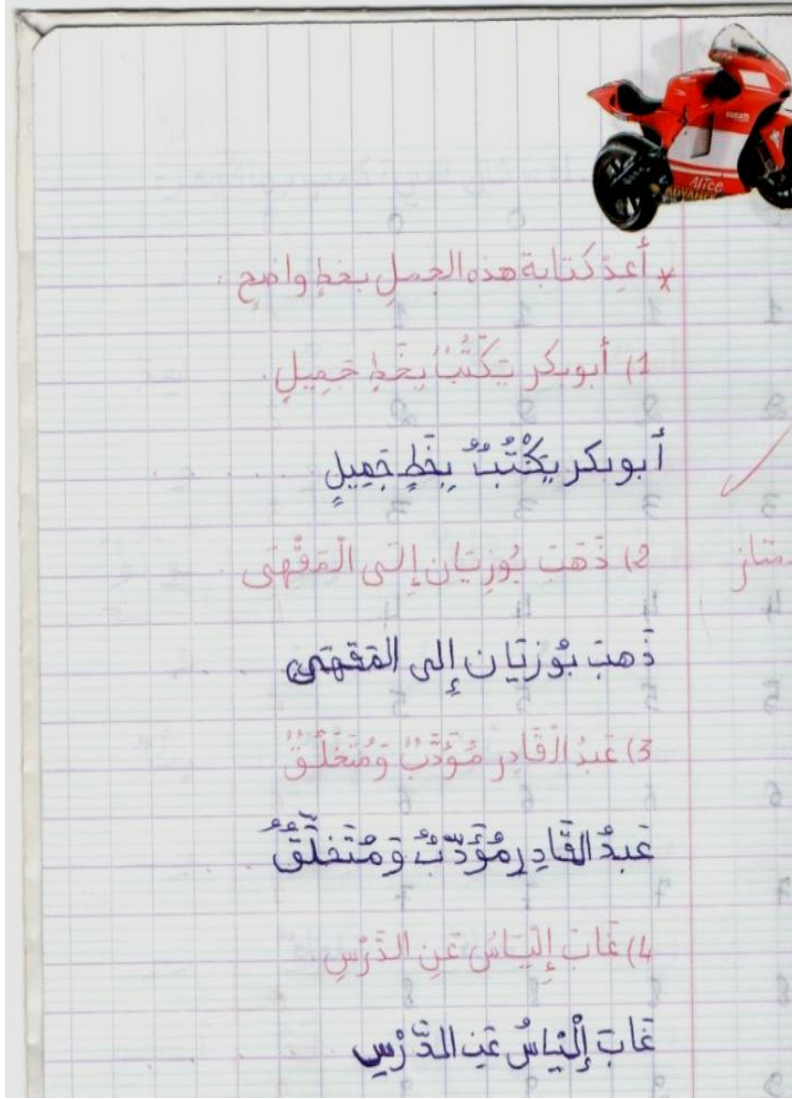 DUCATI
Alice
* أعِدْ كتابة هذه الجملِ بخطٍ واضحٍ.
1) أبوبكر يَكْتُبُ بِخَطٍ جَمِيلٍ.
أبوبكر يَكْتُبُ بِخَطٍ جَمِيلٍ
2) ذَهَبَ بُوزِيَان إِلَى الْمَقْهَى
ذَهبَ بُوزيَان إِلى المَقهَى
3) عَبدُ الْقَادِر مُؤَدَّبٌ وَمُتَخَلِّقٌ
عَبدُ القَادِر مُؤَدَّبٌ وَمُتَخلِّقٌ
4) غَابَ إِليَاسُ عَنِ الدَّرْسِ.
غَابَ إِلْيَاسُ عَنِ الدَّرْسِ